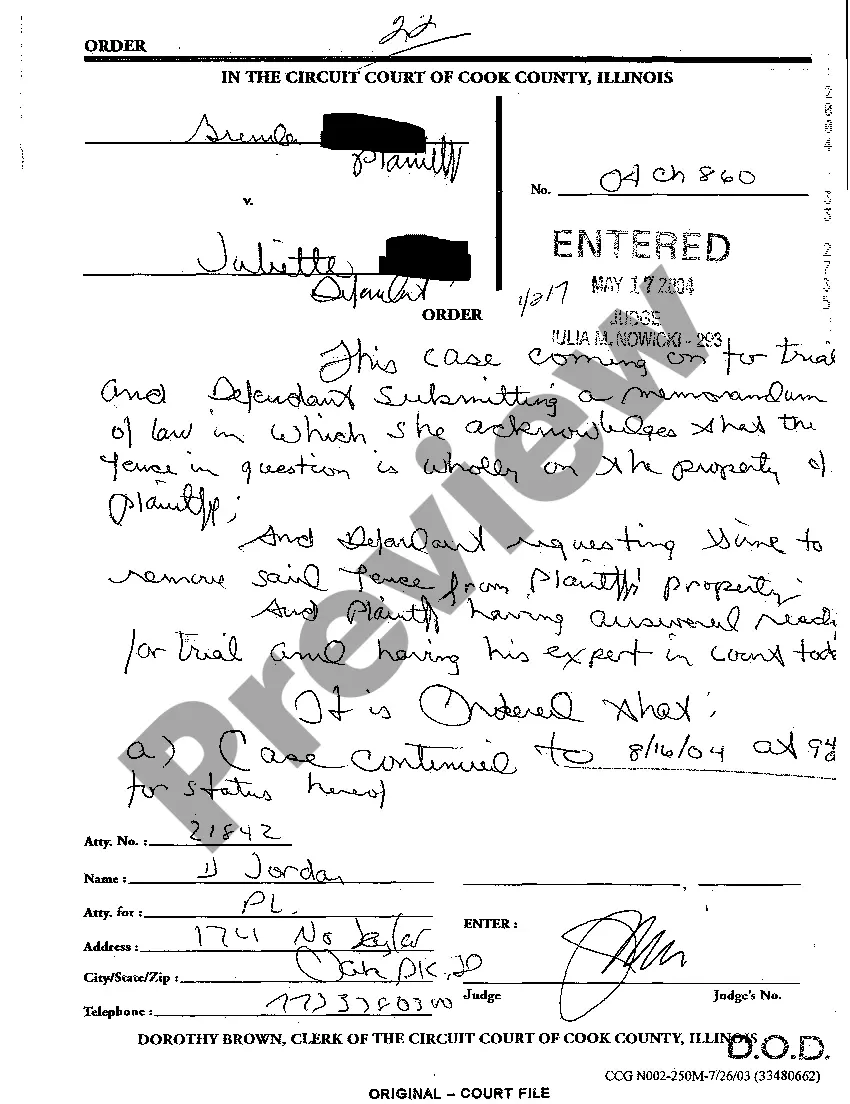 22
ORDER
IN THE CIRCUIT COURT OF COOK COUNTY, ILLINOIS
Brenda
Plaintiff
v.
No. 04 Ch 860
Juliette
Defendant
ENTERED
MAY 17 2004
JUDGE
JULIA M. NOWICKI - 293
4217
ORDER
This case coming on for trial
and Defendant submitting a memorandum
of law in which she acknowledges that the
fence in question is wholly on the property of
plaintiff;
And Defendant requesting time to
remove said fence from Plaintiff's property;
And Plaintiff having answered ready
for trial and having his expert in court
It is Ordered that:
a) Case continued to 8/16/04 at
for status hereof
Atty. No. : 21842
Name : D Jordan
Atty. for : PL.
Address : 1741 No Taylor
City/State/Zip : Oak PK. Il
Telephone :
ENTER :
Judge
Judge's No.
DOROTHY BROWN, CLERK OF THE CIRCUIT COURT OF COOK COUNTY, ILLINOIS
D.O.D.
CCG N002-250M-7/26/03 (33480662)
ORIGINAL – COURT FILE
Preview